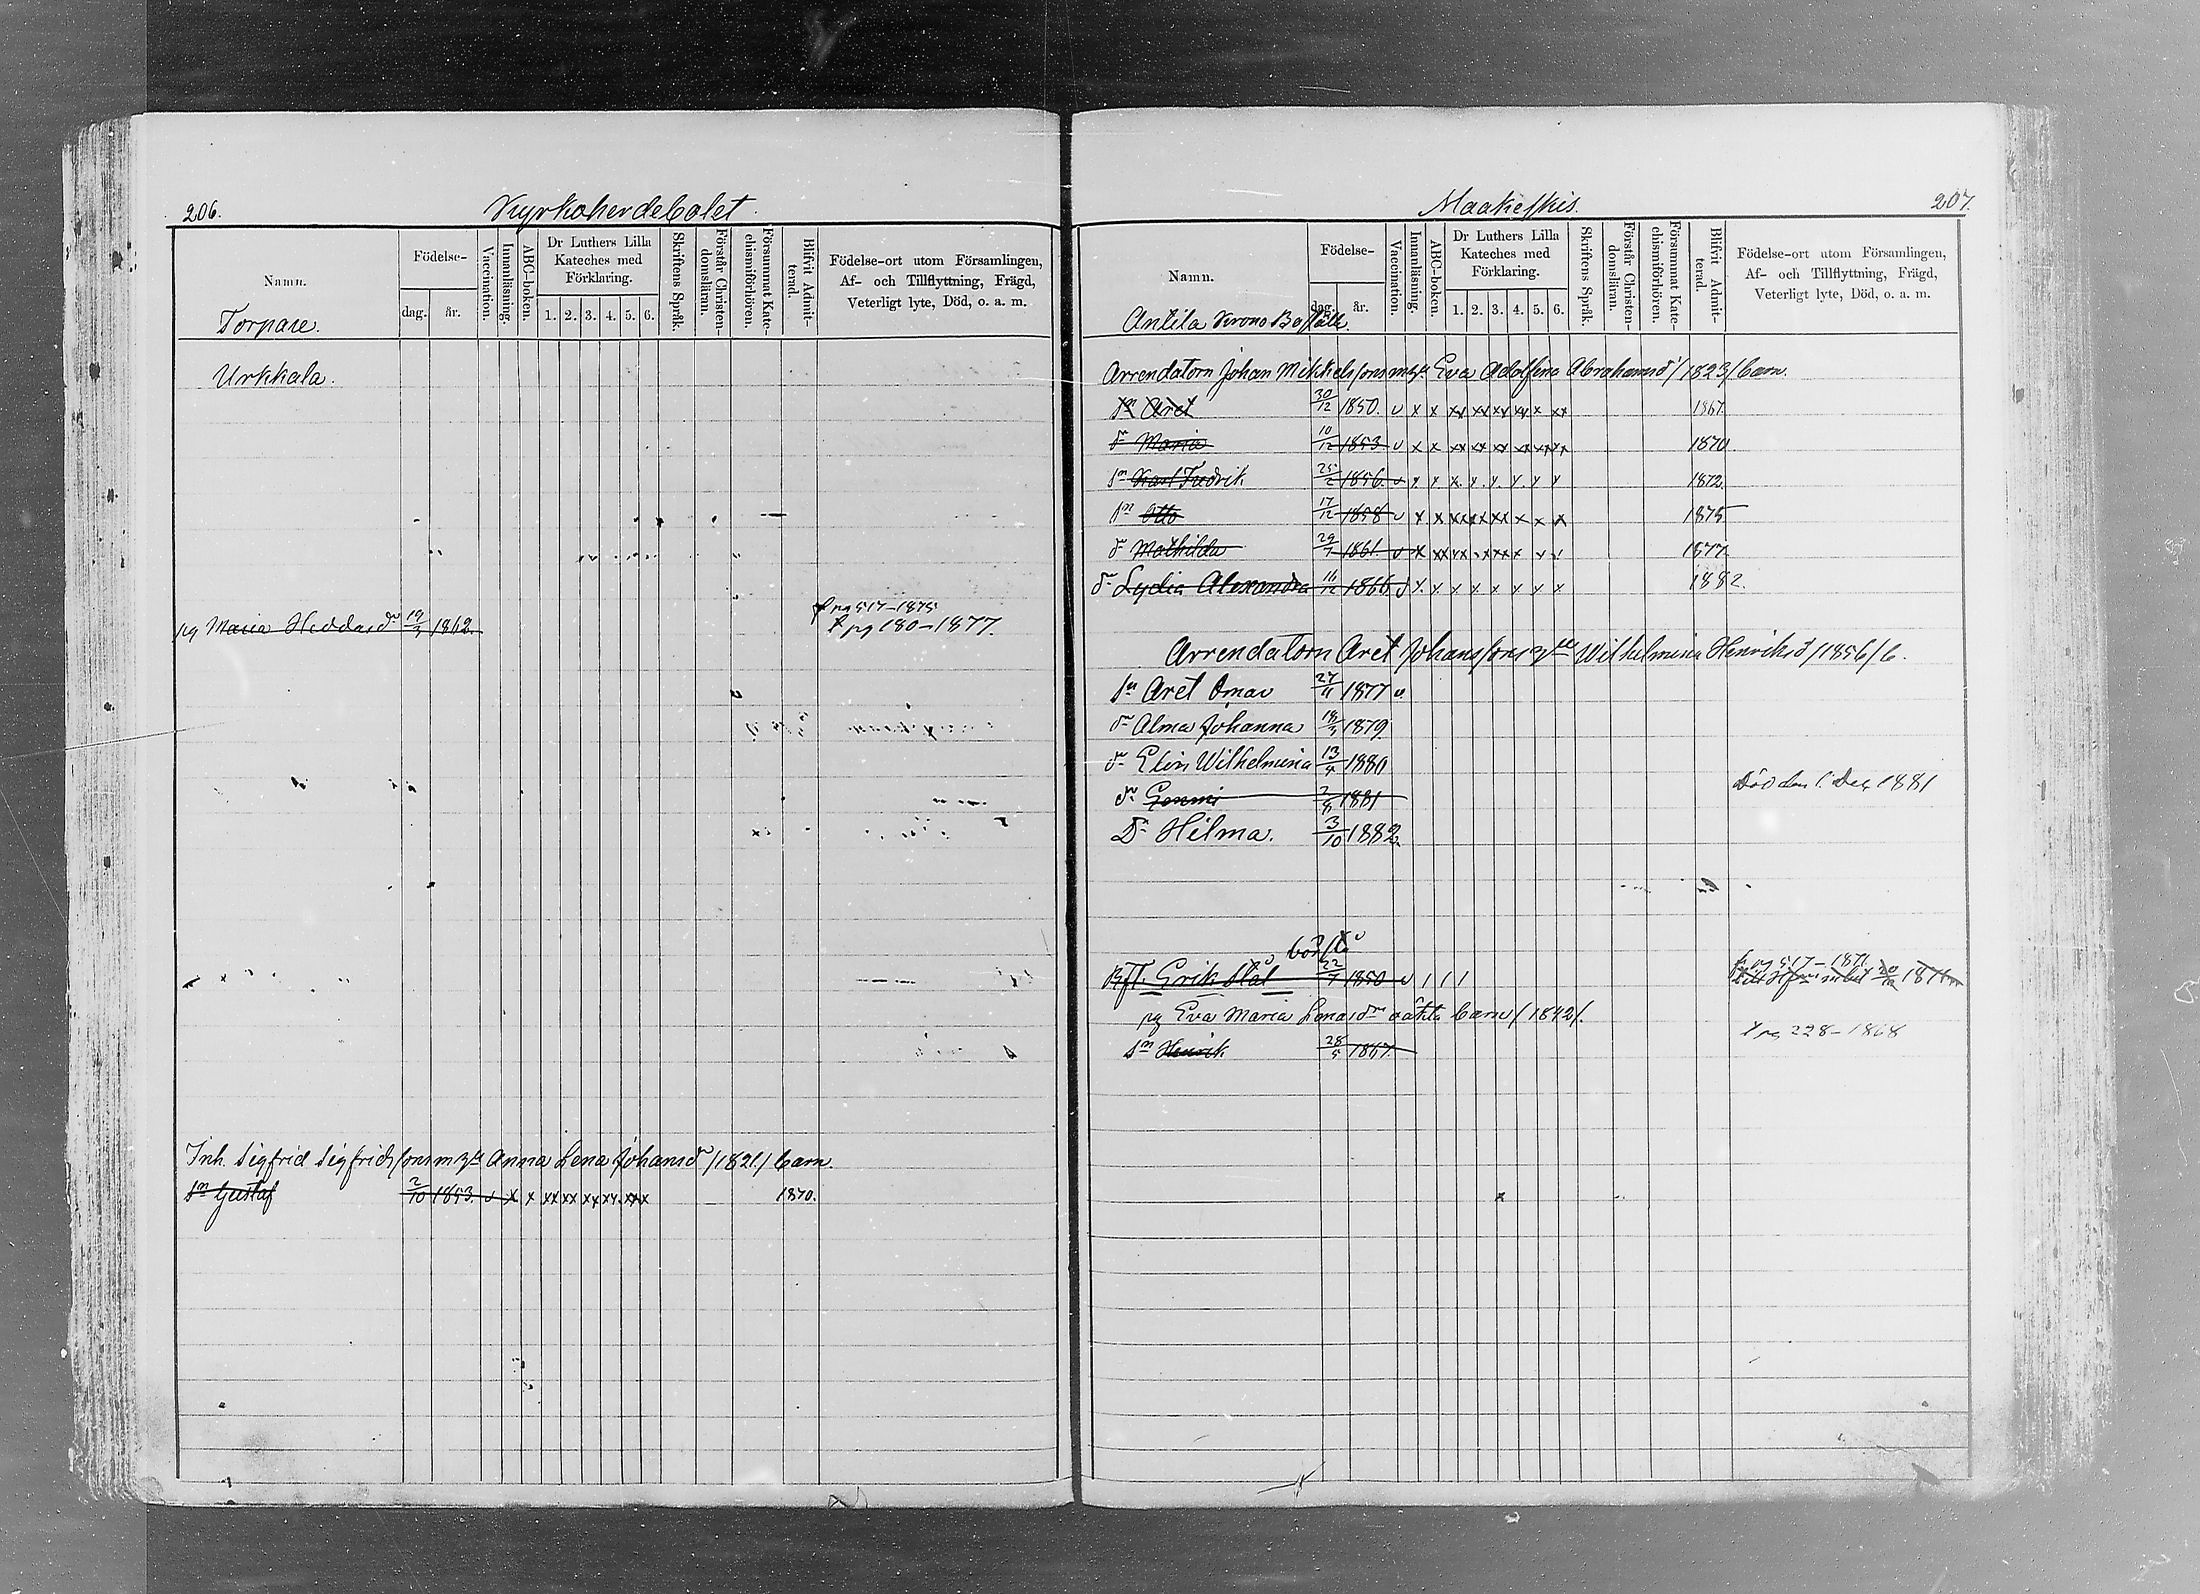 206.
Kyrkoherdebolet.
Namn.
Födelse-
dag.
år.
Vaccination.
Innanläsning.
ABC-boken.
Dr Luthers Lilla
Kateches med
Förklaring.
1. 2. 3. 4. 5. 6.
Skriftens Språk.
Förstår Christen-
domsläran.
Försummat Kate-
chismiförhören.
Blifvit Admit-
terad.
Födelse-ort utom Församlingen,
Af- och Tillflyttning, Frägd,
Veterligt lyte, Död, o. a. m.
Torpare.
Urkkala.
pg Maria Heddasdr 19/3 1862. f pg 517-1875
t pg 180-1877.
Inh. Sigfrid Sigfrids sons m hu Anna Lena Johansdr /1821/ barn.
sn Gustaf 2/10 1853. v x x xx xx xx xx xx x 1870.
Maakeskis.
207.
Namn.
Födelse-
dag.
år.
Vaccination.
Innanläsning.
ABC-boken.
Dr Luthers Lilla
Kateches med
Förklaring.
1. 2. 3. 4. 5. 6.
Skriftens Språk.
Förstår Christen-
domsläran.
Försummat Kate-
chismiförhören.
Blifvit Admit-
terad.
Födelse-ort utom Församlingen,
Af- och Tillflyttning, Frägd,
Veterligt lyte, Död, o. a. m.
Antila Krono Boställe.
Arrendatorn Johan Mikkels sons m hu Eva Adolfina Abrahamsd /1823/ barn.
sn Aret 30/12 1850. v x x xx xx xx xx x xx 1867.
dr Maria 10/12 1853 v x x xx xx xx xx xx xx 1870.
sn Karl Fredrik 25/2 1856. v x x x x x x x x 1872.
sn Otto 17/12 1858 v x x xx xx xx x x x 1875
dr Mathilda 29/7 1861. v x xx xx x xx x x 1877.
dr Lydia Alexandra 16/12 1866 v x x x x x x x x 1882.
Arrendatorn Aret Johans sons Wilhelmina Henriksd /1856/ b.
sn Aret Omar 27/11 1877 v
dr Alma Johanna 18/3 1879
dr Elin Wilhelmina 13/4 1880
dr 2/8 1881 Död den 1. Dec 1881
Dr Hilma. 3/10 1882
Erik Stål 22/7 1850 v 1 1 1 f. pg 517-1871.
pg Eva Maria Lenasdrs oäkta barn /1842/.
sn Henrik 28/5 1867. t pg 228-1868